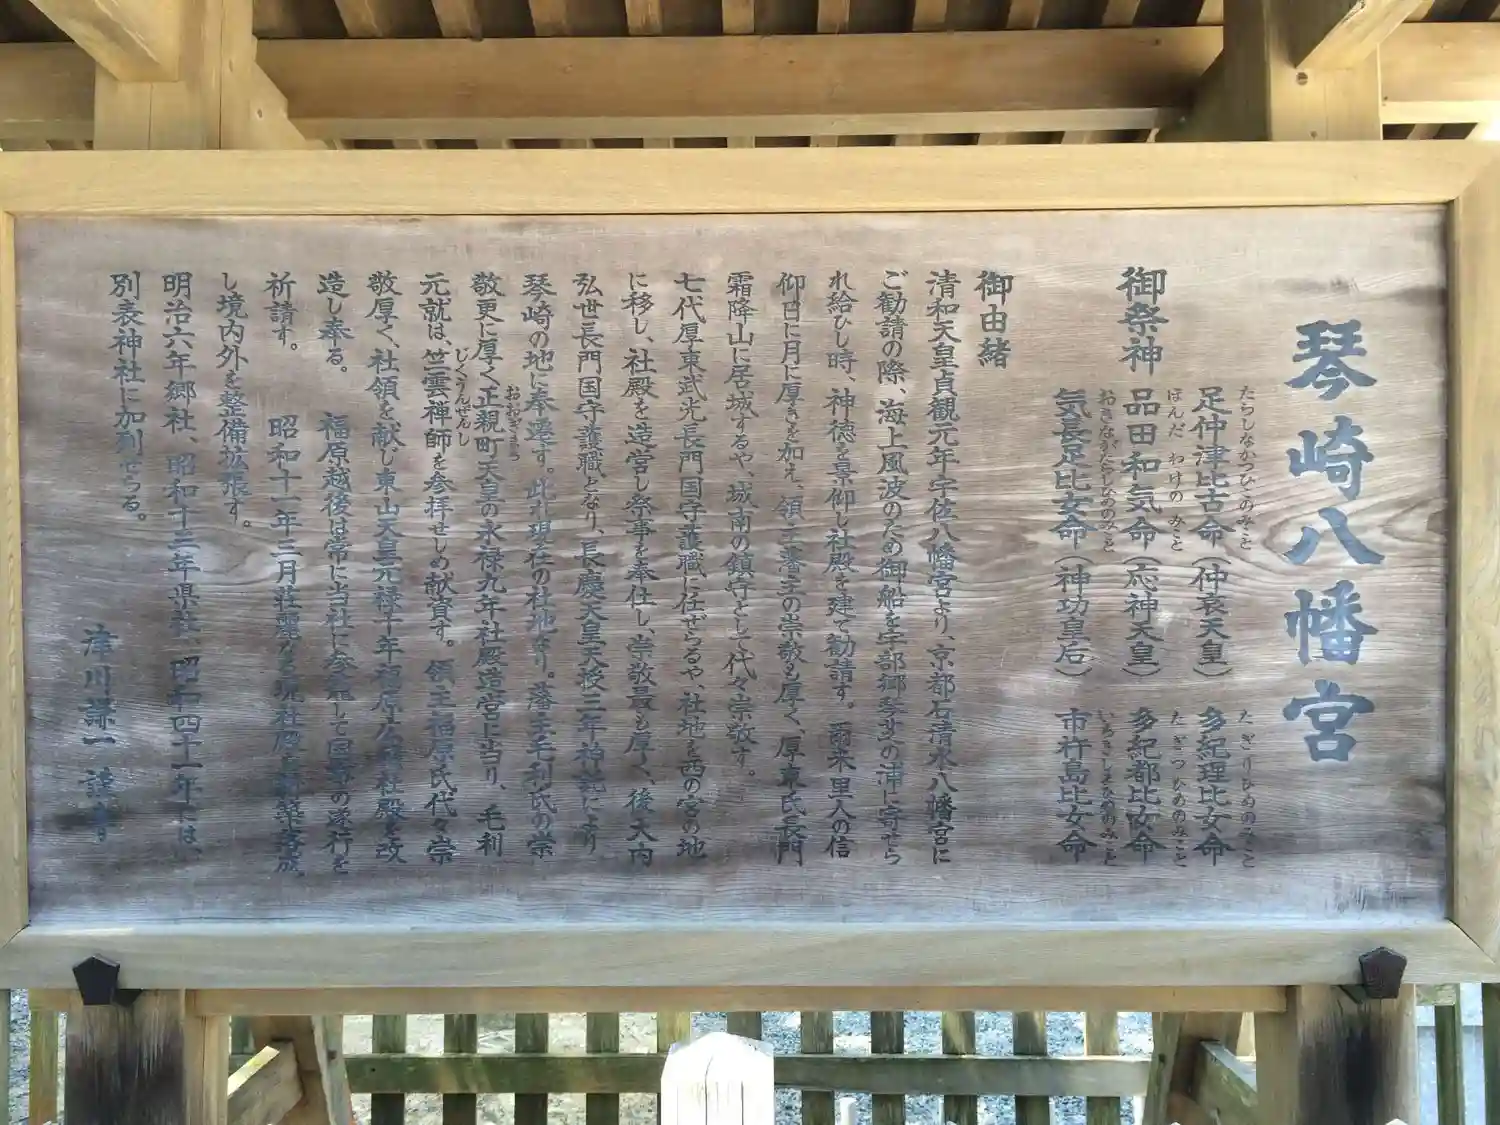 琴崎八幡宮
御祭神
たらしなかつひこのみこと
足仲津比古命（仲哀天皇）
たぎりひめのみこと
多紀理比女命
ほんだ わけの みこと
品田和気命（応神天皇）
たぎつひめのみこと
多紀都比女命
おきながたらしひめのみこと
気長足比女命（神功皇后）
いちきしまひめのみこと
市杵島比女命
御由緒
清和天皇貞観元年宇佐八幡宮より、京都石清水八幡宮に
ご勧請の際、海上風波のため御船を宇部郷琴芝の浦に寄せら
れ給ひし時、神徳を景仰し社殿を建て勧請す。爾来里人の信
仰日に月に厚きを加え、領主藩主の崇敬も厚く、厚東氏長門
霜降山に居城するや、城南の鎮守として代々崇敬す。
七代厚東武光長門国守護職に任ぜらるや、社地を西の宮の地
に移し、社殿を造営し祭事を奉仕し、崇敬最も厚く、後大内
弘世長門国守護職となり、長慶天皇天授三年神託により
琴崎の地に奉遷す。此れ現在の社地なり。藩主毛利氏の崇
おおぎまち
敬更に厚く正親町天皇の永禄九年社殿造営に当り、毛利
じくうんぜんし
元就は、竺雲禅師を参拝せしめ献資す。領主福原氏代々崇
敬厚く、社領を献じ東山天皇元禄十年福原広俊社殿を改
造し奉る。 福原越後は常に当社に参籠して国事の遂行を
祈請す。 昭和十一年三月荘麗なる現社殿を新築落成
し境内外を整備拡張す。
明治六年郷社、昭和十三年県社、昭和四十一年には、
別表神社に加列せらる。
津川謙一謹書